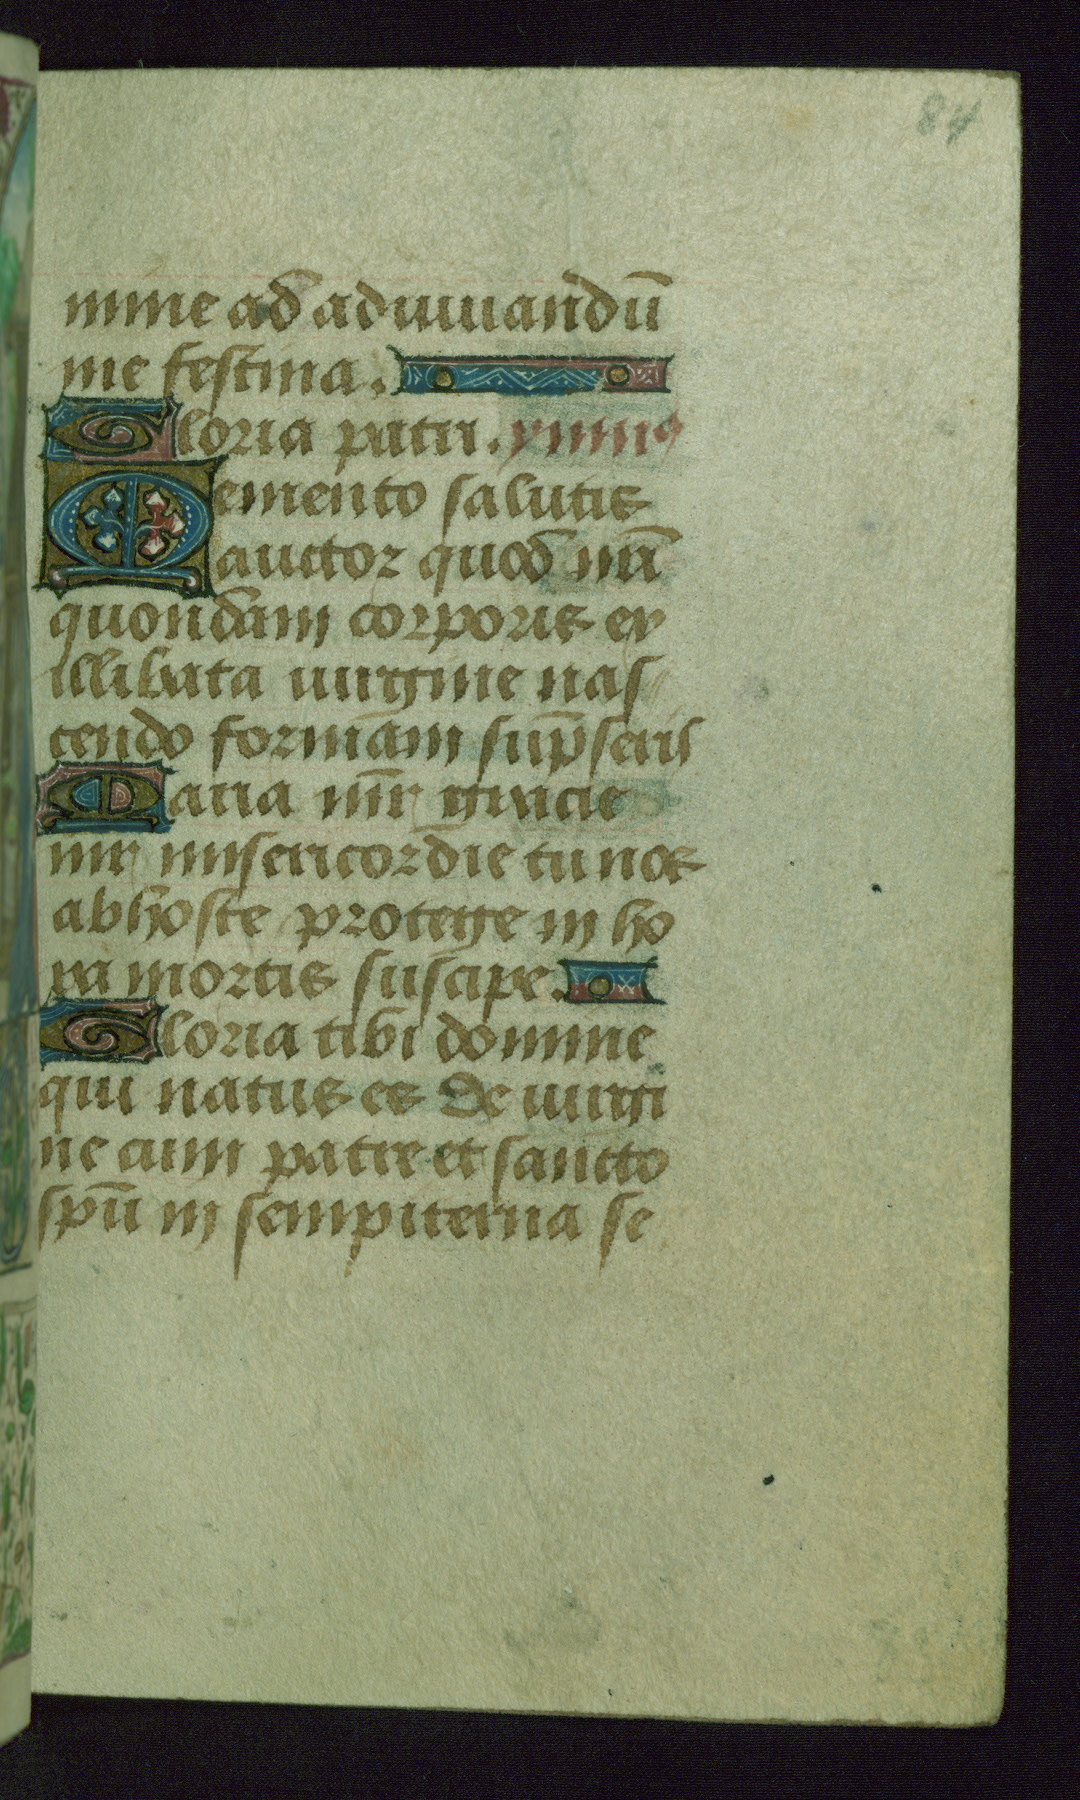 84
mine ad̄ adiuuandū
me festina.
Gloria patri. ymnus
Memento salutis
auctor quod̄ nr̄i
quondam corporis ex
illibata uirgine nas
cendo formam sūp̄seris
Maria mr̄ gracie
mr̄ misericordie tu nos
ab hoste protege in ho
ra mortis suscipe.
Gloria tibi domine
qui natus es de uirgi
ne cum patre et sancto
spū in sempiterna se